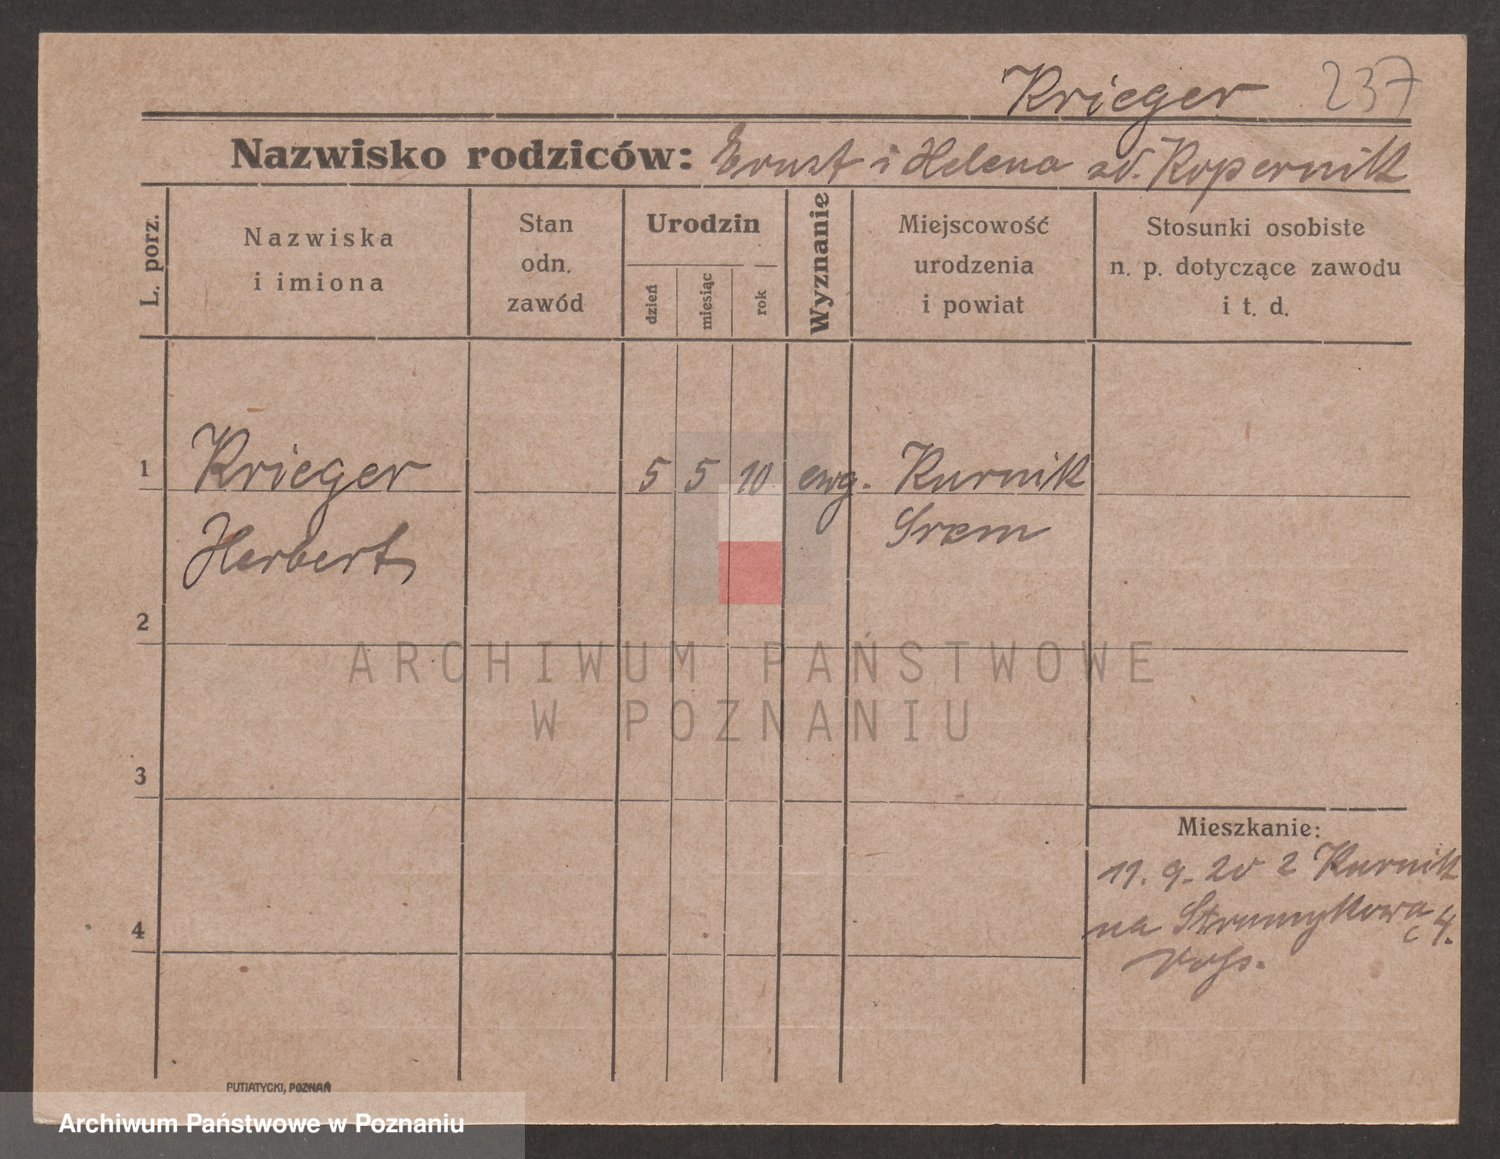 Krieger 237
Nazwisko rodziców: Ernst i Helena zd. Kopernik
L. porz.
Nazwiska
i imiona
Stan
odn.
zawód
Urodzin
dzień
miesiąc
rok
Wyznanie
Miejscowość
urodzenia
i powiat
Stosunki osobiste
n. p. dotyczące zawodu
i t. d.
1 Krieger 5 5 10 ewg. Kurnik
Herbert Srem
2
3
4
Mieszkanie:
11. 9. 20 z Kurnik
na Strumykowa
4.
PUTIATYCKI, POZNAŃ
ARCHIWUM PAŃSTWOWE
W POZNANIU
Archiwum Państwowe w Poznaniu